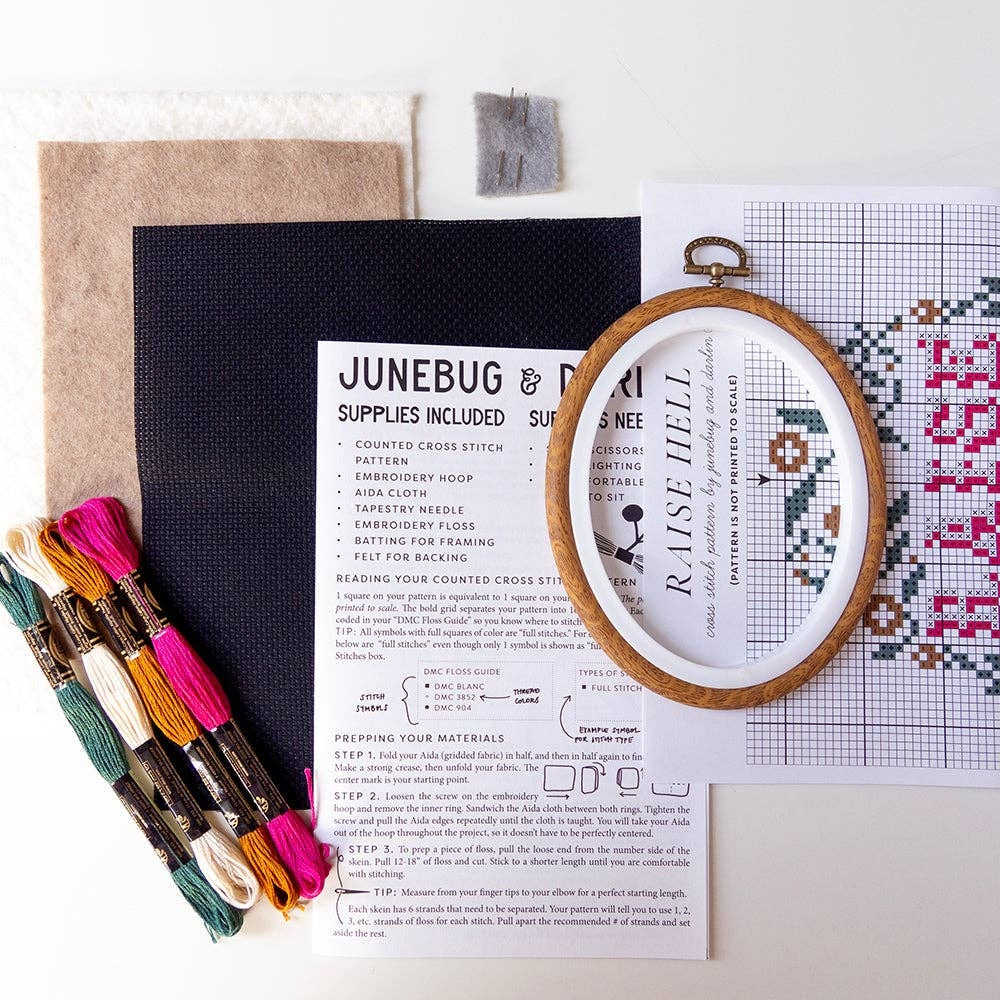 JUNEBUG &
SUPPLIES INCLUDED
• COUNTED CROSS STITCH
PATTERN
• EMBROIDERY HOOP
• AIDA CLOTH
• TAPESTRY NEEDLE
• EMBROIDERY FLOSS
• BATTING FOR FRAMING
• FELT FOR BACKING
SCISSORS
TO SIT
READING YOUR COUNTED CROSS
1 square on your pattern is equivalent to 1 square on
printed to scale. The bold grid separates your pattern into
coded in your "DMC Floss Guide" so you know where to stitch
TIP: All symbols with full squares of color are "full stitches." For
below are "full stitches" even though only 1 symbol is shown as
Stitches box.
DMC FLOSS GUIDE
■ DMC BLANC
DMC 3852
■ DMC 904
STITCH
SYMBOLS
THREAD
COLORS
TYPES OF
■ FULL STITCH
EXAMPLE SYMBOL
FOR STITCH TYPE
PREPPING YOUR MATERIALS
STEP 1. Fold your Aida (gridded fabric) in half, and then in half again to
Make a strong crease, then unfold your fabric. The
center mark is your starting point.
STEP 2. Loosen the screw on the embroidery
hoop and remove the inner ring. Sandwich the Aida cloth between both rings. Tighten the
screw and pull the Aida edges repeatedly until the cloth is taught. You will take your Aida
out of the hoop throughout the project, so it doesn't have to be perfectly centered.
STEP 3. To prep a piece of floss, pull the loose end from the number side of the
skein. Pull 12-18" of floss and cut. Stick to a shorter length until you are comfortable
with stitching.
TIP: Measure from your finger tips to your elbow for a perfect starting length.
Each skein has 6 strands that need to be separated. Your pattern will tell you to use 1, 2,
3, etc. strands of floss for each stitch. Pull apart the recommended # of strands and set
aside the rest.
RAISE HELL
cross stitch pattern by junebug and darlin
(PATTERN IS NOT PRINTED TO SCALE)